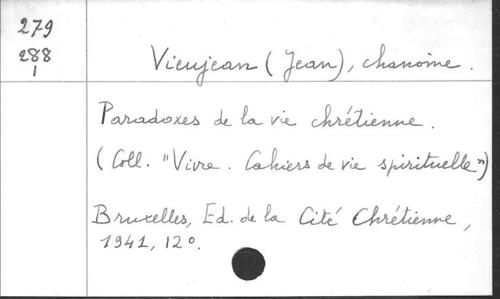 279
288
1
Vieujean (Jean), chanoine.
Paradoxes de la vie chrétienne.
(Coll. "Vivre. Cahiers de vie spirituelle")
Bruxelles, Ed. de la Cité Chrétienne,
1941, 12°.